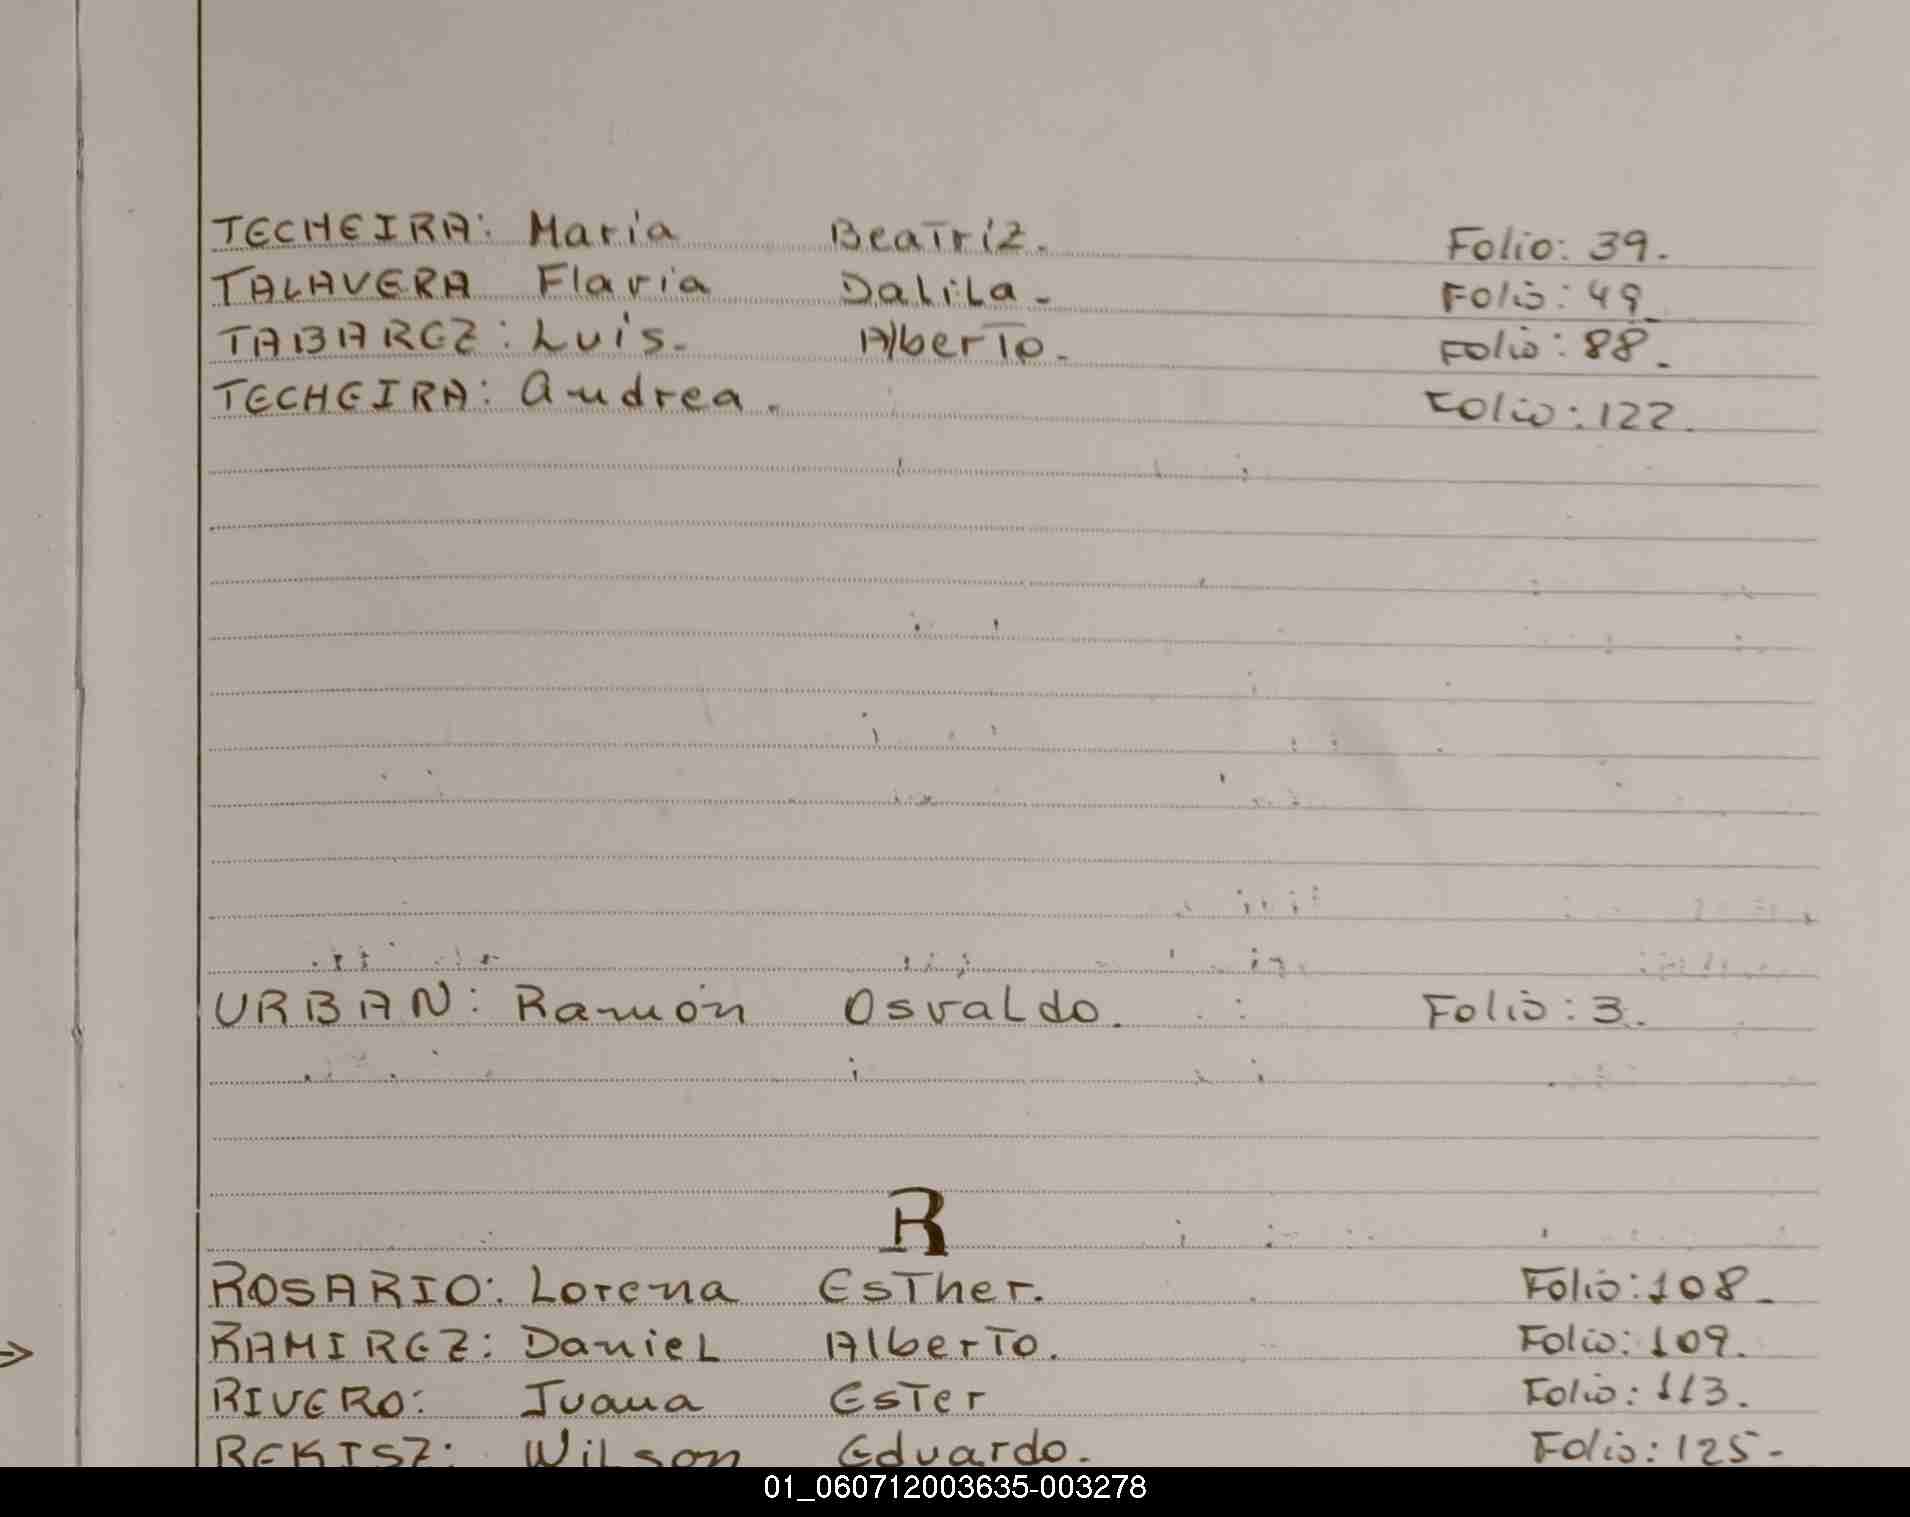 TECHEIRA: María Beatriz. Folio: 39.
TALAVERA Flavia Dalila. Folio: 49
TABAREZ: Luis. Alberto. Folio: 88.
TECHEIRA: Andrea. Folio: 122.
URBAN: Ramón Osvaldo. Folio: 3.
R
ROSARIO: Lorena Esther. Folio: 108.
RAMIREZ: Daniel Alberto. Folio: 109.
RIVERO: Juana Ester Folio: 113.
REKISZ: Wilson Eduardo. Folio: 125-
01_060712003635-003278